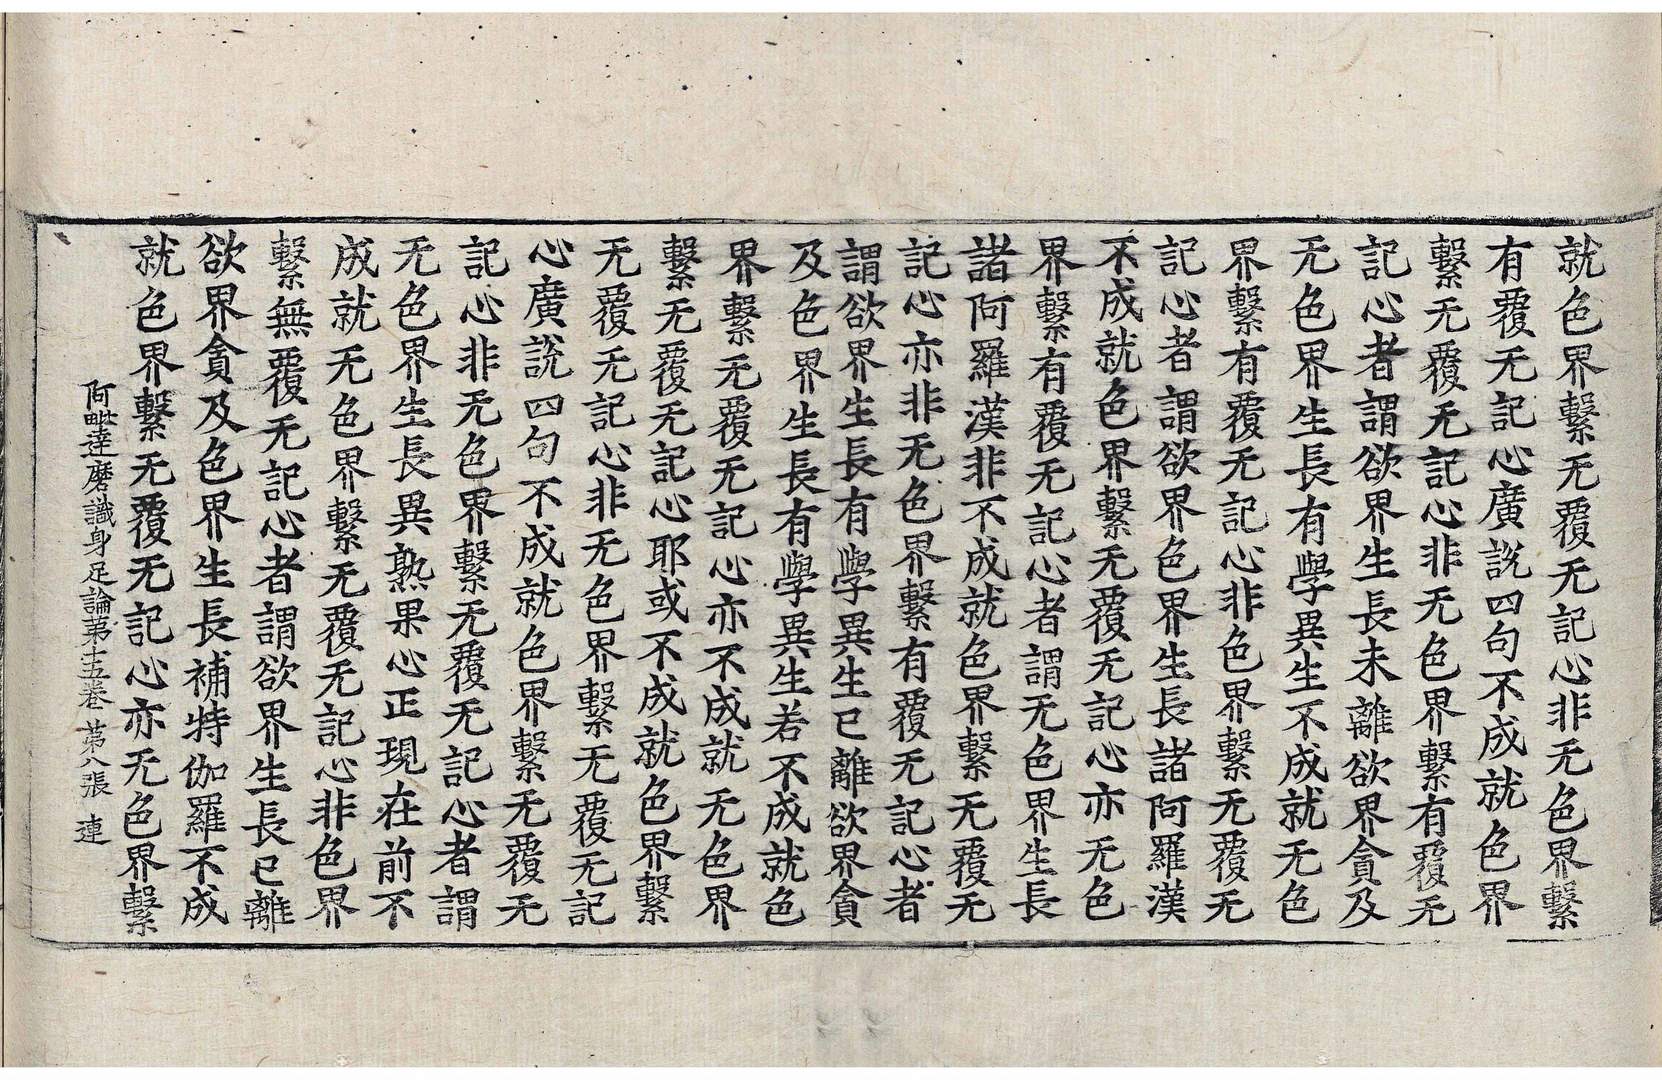 就色界繫无覆无記心非无色界繫
有覆无記心廣說四句不成就色界
繫无覆无記心非无色界繫有覆无
記心者謂欲界生長未離欲界貪及
无色界生長有學異生不成就无色
界繫有覆无記心非色界繫无覆无
記心者謂欲界色界生長諸阿羅漢
不成就色界繫无覆无記心亦无色
界繫有覆无記心者謂无色界生長
諸阿羅漢非不成就色界繫无覆无
記心亦非无色界繫有覆无記心者
謂欲界生長有學異生已離欲界貪
及色界生長有學異生若不成就色
界繫无覆无記心亦不成就无色界
繫无覆无記心耶或不成就色界繫
无覆无記心非无色界繫无覆无記
心廣說四句不成就色界繫无覆无
記心非无色界繫无覆无記心者謂
无色界生長異熟果心正現在前不
成就无色界繫无覆无記心非色界
繫無覆无記心者謂欲界生長已離
欲界貪及色界生長補特伽羅不成
就色界繫无覆无記心亦无色界繫
阿毗達磨識身足論第十五卷 第八張 連